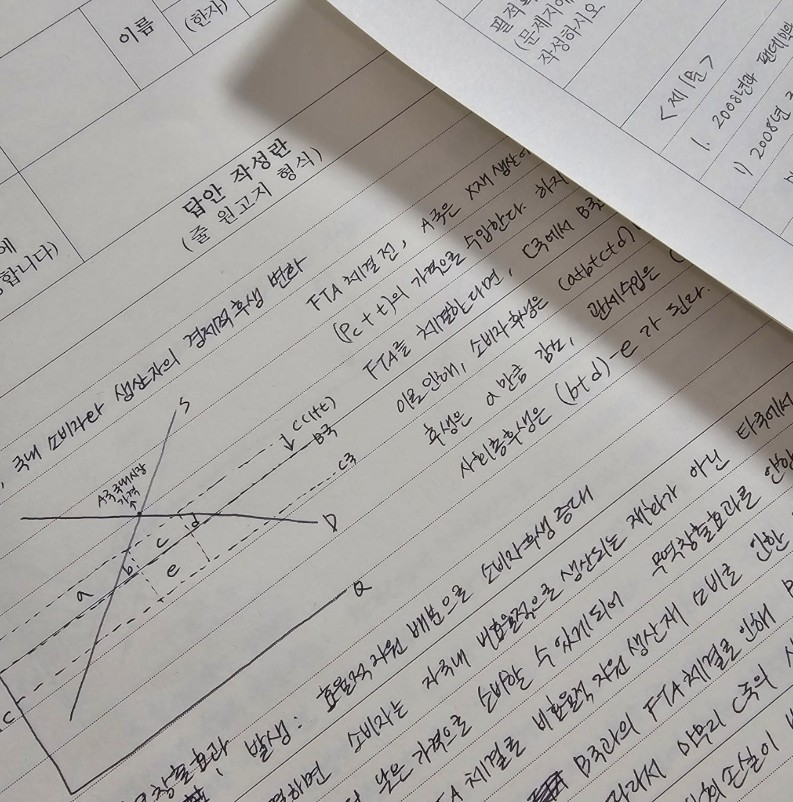 이름
(한자)
(문제지에
작성하시오
<제1문>
1. 2008년과
1) 2008년
에
합니다)
답안 작성란
(줄 원고지 형식)
국내 소비자와 생산자의 경제적 후생 변화
FTA 체결 전, A국은 X재 생산
(Pc+t)의 가격으로 수입한다. 하지
FTA를 체결한다면, C국에서 B국
이로 인해, 소비자 후생은 (a+b+c+d)
후생은 a만큼 감소, 관세수입은 (
사회총후생은 (b+d)-e가 된다.
S
A국 국내시장
가격
C(1+t)
B국
C국
D
a
b
c
d
e
Q
C
무역창출효과 발생: 효율적 자원 배분으로 소비자후생 증대
하면 소비자는 자국내 비효율적으로 생산되는 재화가 아닌 타국에서
낮은 가격으로 소비할 수 있게되어 무역창출효과를
FTA 체결로 비효율적 자원 생산재 소비로 인한
B국과의 FTA체결로 인해 B
따라서 아무리 C국의
손실이